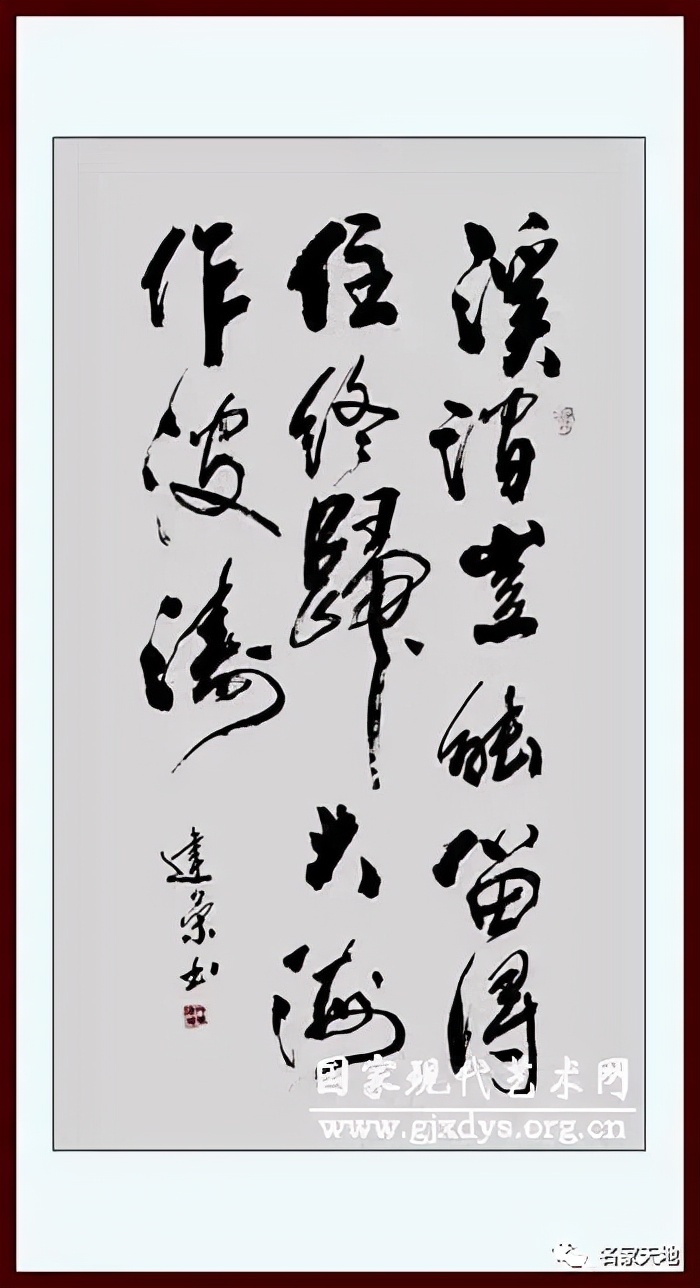 溪澗豈能留得
住終歸大海
作波濤
建 书
国家现代艺术网
www.gjxdys.org.cn
名家天地